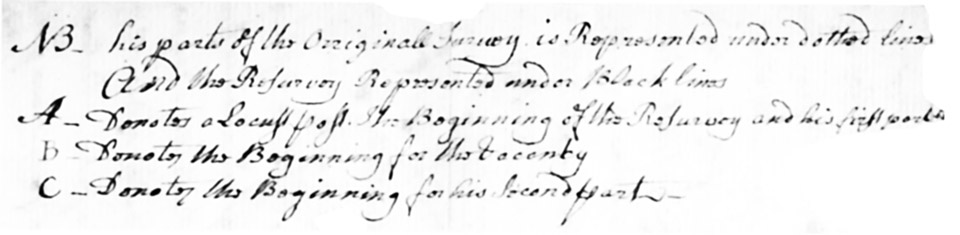 NB - his parts of the Orriginall Survey is Represented under dotted lines
And the Resurvey Represented under Black lines
A - Denotes a Locust post. The Beginning of the Resurvey and his first part
b - Denotes the Beginning for the Vacancy
C - Denotes the Beginning for his Second part -